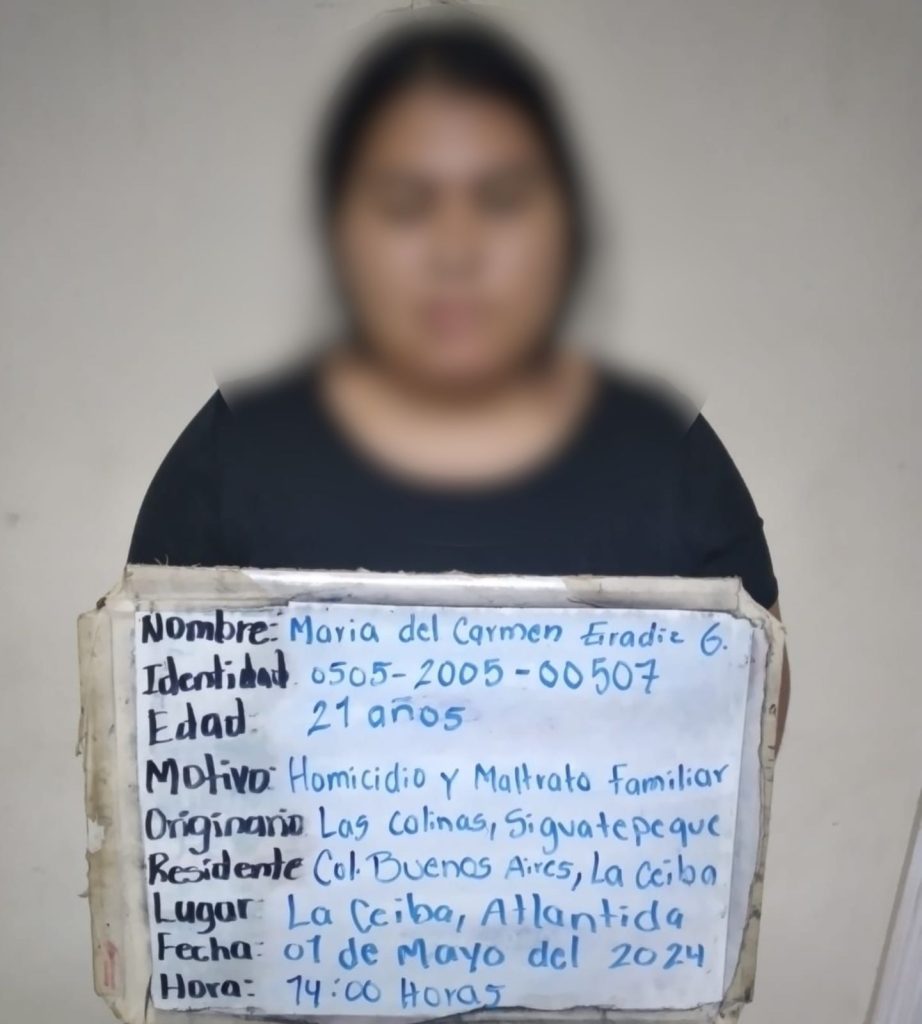 Nombre: Maria del Carmen Eradie G.
Identidad 0505-2005-00507
Edad: 21 años
Motivo: Homicidio y Maltrato familiar
Originario Las Colinas, Siguatepeque
Residente Col. Buenos Aires, La Ceiba
Lugar: La Ceiba, Atlantida
Fecha: 01 de Mayo del 2024
Hora: 14:00 Horas